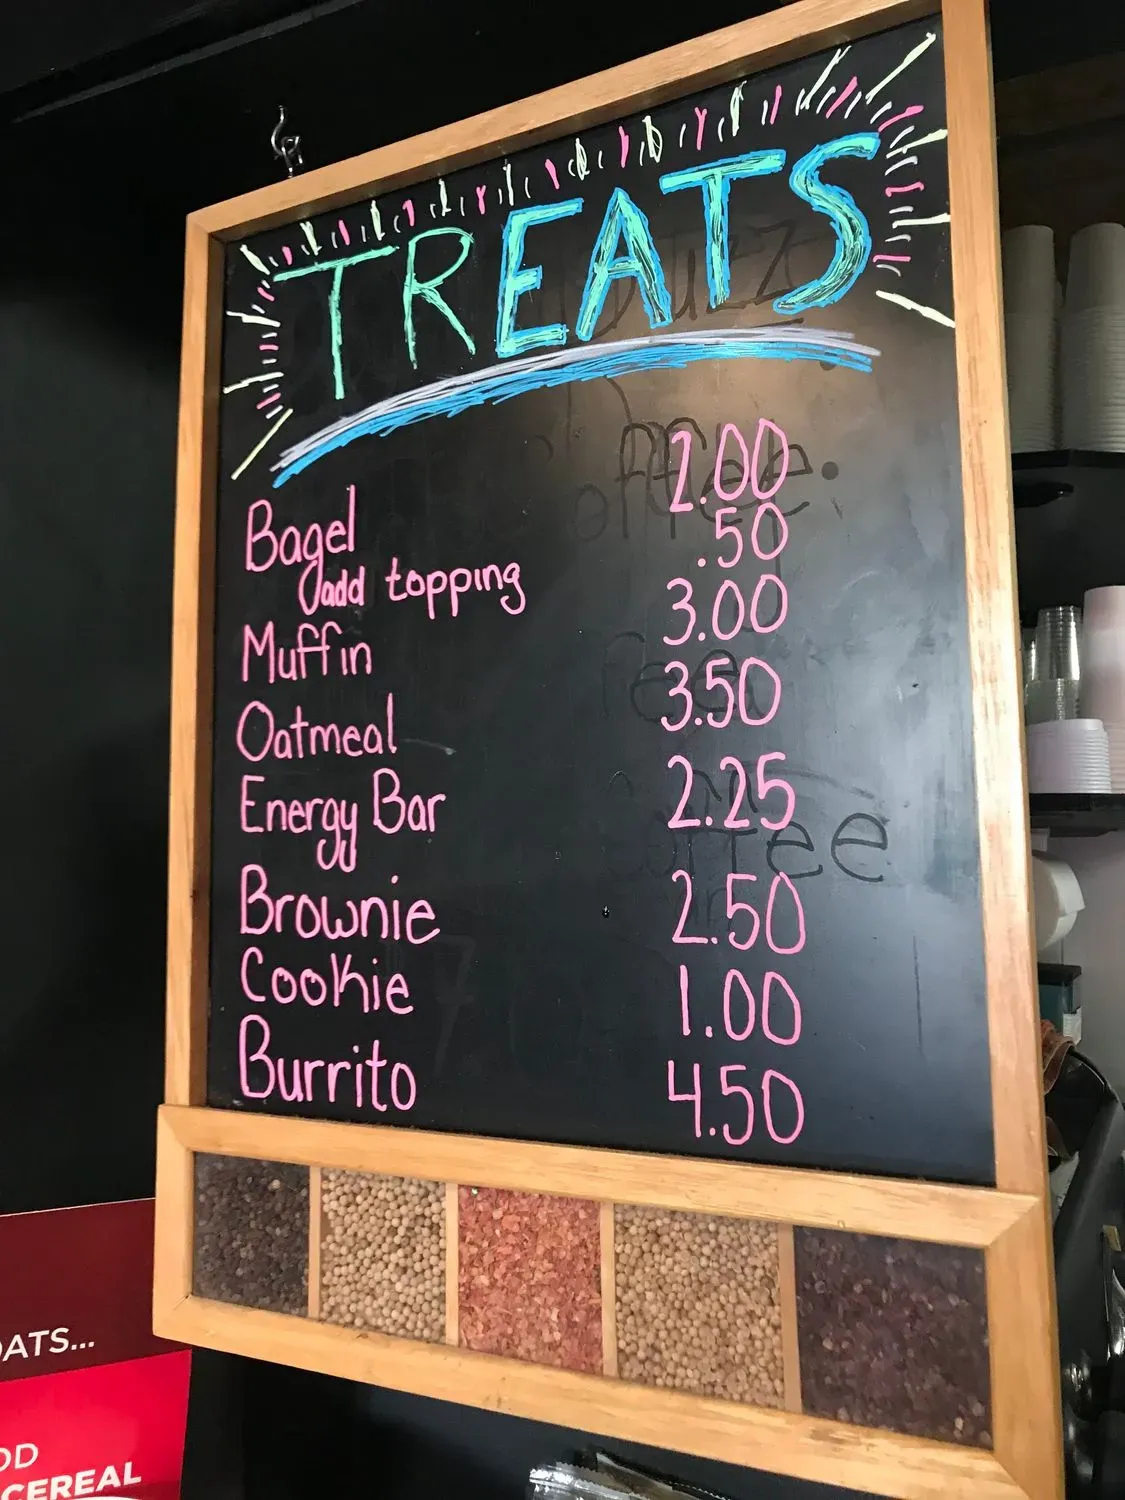 TREATS
Bagel 2.00
add topping .50
Muffin 3.00
Oatmeal 3.50
Energy Bar 2.25
Brownie 2.50
Cookie 1.00
Burrito 4.50
OATS...
OD
CEREAL